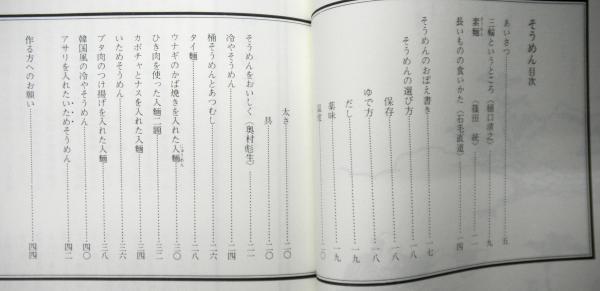 そうめん目次
あいさつ……五
三輪というところ（樋口清之）……九
素麺（篠田　統）……一一
長いものの食いかた（石毛直道）……一四
そうめんのおぼえ書き……一七
そうめんの選び方……一八
保存……一八
ゆで方……一八
だし……一九
薬味……一九
温度……二〇
太さ……二〇
具……二〇
そうめんをおいしく（奥村彪生）……二一
冷やそうめん……二四
桶そうめんとあつむし……二六
タイ麺……二八
ウナギのかば焼きを入れた入麺……三〇
ひき肉を使った入麺二題……三二
カボチャとナスを入れた入麺……三四
いためそうめん……三六
ブタ肉のつけ揚げを入れた入麺……三八
韓国風の冷やそうめん……四〇
アサリを入れたいためそうめん……四二
作る方へのお願い……四四